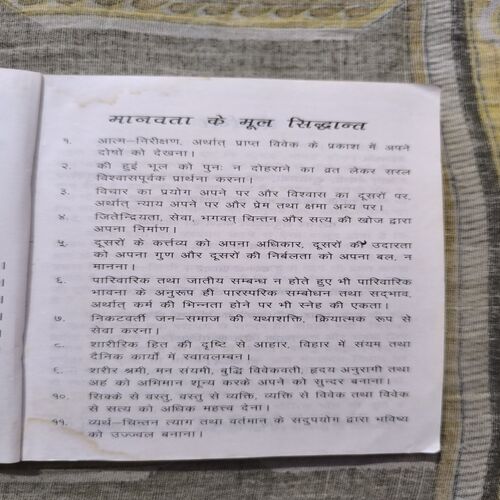 मानवता के मूल सिद्धान्त
१. आत्म-निरीक्षण, अर्थात् प्राप्त विवेक के प्रकाश में अपने
दोषों को देखना।
२. की हुई भूल को पुनः न दोहराने का व्रत लेकर सरल
विश्वासपूर्वक प्रार्थना करना।
३. विचार का प्रयोग अपने पर और विश्वास का दूसरों पर,
अर्थात् न्याय अपने पर और प्रेम तथा क्षमा अन्य पर।
४. जितेन्द्रियता, सेवा, भगवत् चिन्तन और सत्य की खोज द्वारा
अपना निर्माण।
५. दूसरों के कर्त्तव्य को अपना अधिकार, दूसरों की उदारता
को अपना गुण और दूसरों की निर्बलता को अपना बल, न
मानना।
६. पारिवारिक तथा जातीय सम्बन्ध न होते हुए भी पारिवारिक
भावना के अनुरूप ही पारस्परिक सम्बोधन तथा सद्भाव,
अर्थात् कर्म की भिन्नता होने पर भी स्नेह की एकता।
७. निकटवर्ती जन-समाज की यथाशक्ति, क्रियात्मक रूप से
सेवा करना।
८. शारीरिक हित की दृष्टि से आहार, विहार में संयम तथा
दैनिक कार्यों में स्वावलम्बन।
९. शरीर श्रमी, मन संयमी, बुद्धि विवेकवती, हृदय अनुरागी तथा
अहं को अभिमान शून्य करके अपने को सुन्दर बनाना।
१०. सिक्के से वस्तु, वस्तु से व्यक्ति, व्यक्ति से विवेक तथा विवेक
से सत्य को अधिक महत्त्व देना।
११. व्यर्थ-चिन्तन त्याग तथा वर्तमान के सदुपयोग द्वारा भविष्य
को उज्ज्वल बनाना।